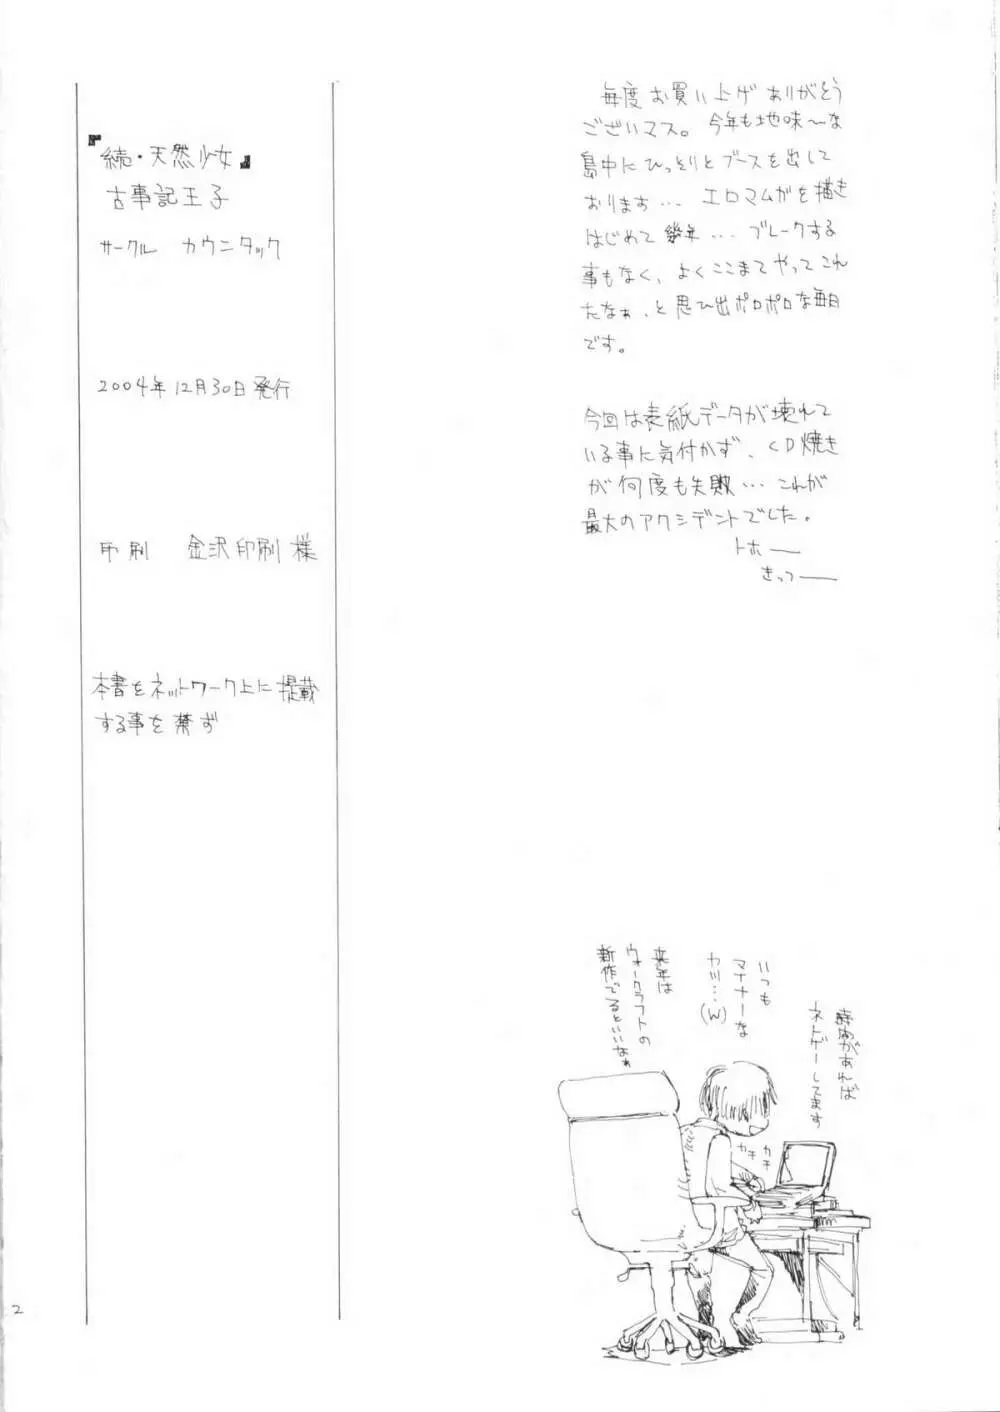 『続・天然少女』
古事記王子
サークル カウニタック
2004年12月30日発行
印刷 金沢印刷様
本書をネットワーク上に掲載
する事を禁ず
毎度お買い上げありがとう
ございマス。今年も地味～な
島中にひっそりとブースを出して
おります… エロマムガを描き
はじめて幾年… ブレークする
事もなく、よくここまでやってこれ
たなぁ、と思ひ出ポロポロな毎日
です。
今回は表紙データが壊れて
いる事に気付かず、CD焼き
が何度も失敗… これが
最大のアクシデントでした。
トホー
きっつー
時間があれば
ネトゲーしてます
いつも
マイナーな
カンジ…(W)
来年は
ウォークラフトの
新作でるといいなぁ
カチ
カチ
2